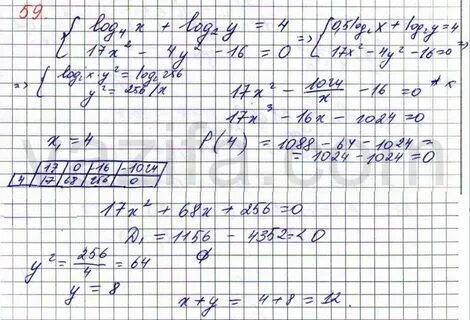 59.
{ log₄ x + log₂ y = 4
17x² - 4y² - 16 = 0 => { 0,5 log₂ x + log₂ y = 4
17x² - 4y² - 16 = 0 =>
=> { log₂ x · y² = log₂ 256
y² = 256/x
17x² - 1024/x - 16 = 0 * x
17x³ - 16x - 1024 = 0
x₁ = 4
P(4) = 1088 - 64 - 1024 =
= 1024 - 1024 = 0
17 0 -16 -1024
4 17 68 256 0
17x² + 68x + 256 = 0
D₁ = 1156 - 4352 = < 0
∅
y² = 256/4 = 64
y = 8
x + y = 4 + 8 = 12.